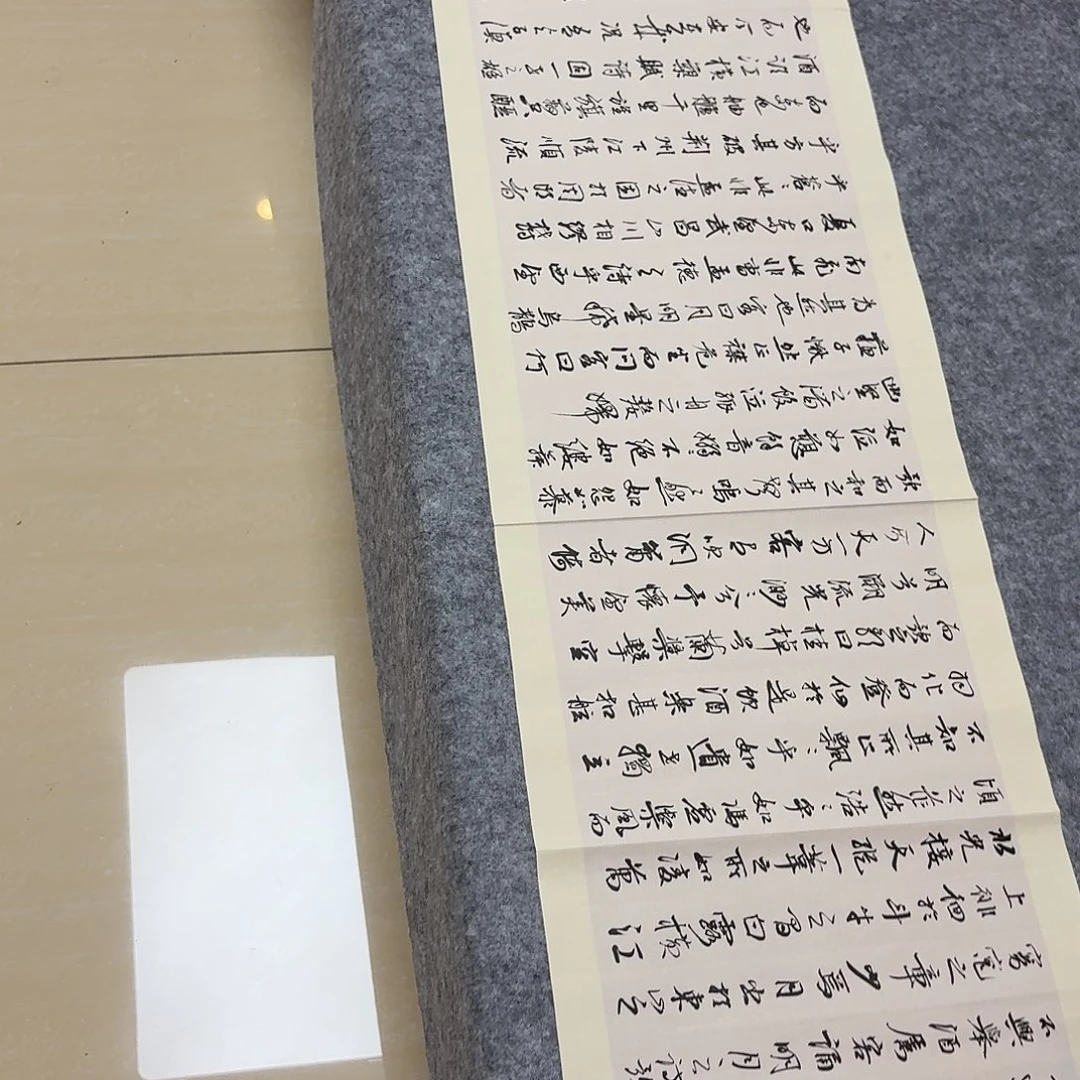 不興舉酒屬客誦明月之詩歌
窈窕之章少焉月出於東山之
上徘徊於斗牛之間白露橫江
水光接天縱一葦之所如凌萬
頃之茫然浩浩乎如馮虛御風而
不知其所止飄飄乎如遺世獨立
羽化而登仙於是飲酒樂甚扣舷
而歌之歌曰桂棹兮蘭槳擊空
明兮溯流光渺渺兮予懷望美
人兮天一方客有吹洞簫者倚
歌而和之其聲嗚嗚然如怨如慕
如泣如訴餘音嫋嫋不絕如縷舞
幽壑之潛蛟泣孤舟之嫠婦
蘇子愀然正襟危坐而問客曰何
為其然也客曰月明星稀烏鵲
南飛此非曹孟德之詩乎西望
夏口東望武昌山川相繆鬱
乎蒼蒼此非孟德之困於周郎者
乎方其破荊州下江陵順流
而東也舳艫千里旌旗蔽空釃
酒臨江橫槊賦詩固一世之雄
也而今安在哉況吾與子漁